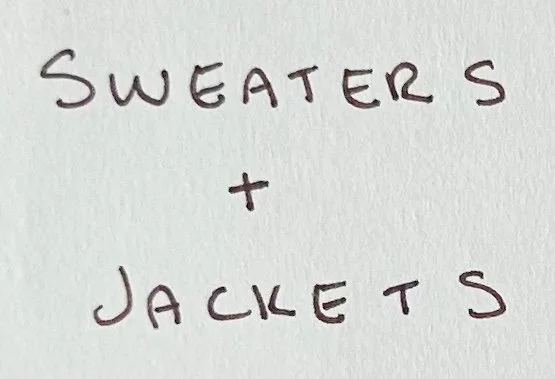 SWEATERS
+
JACKETS